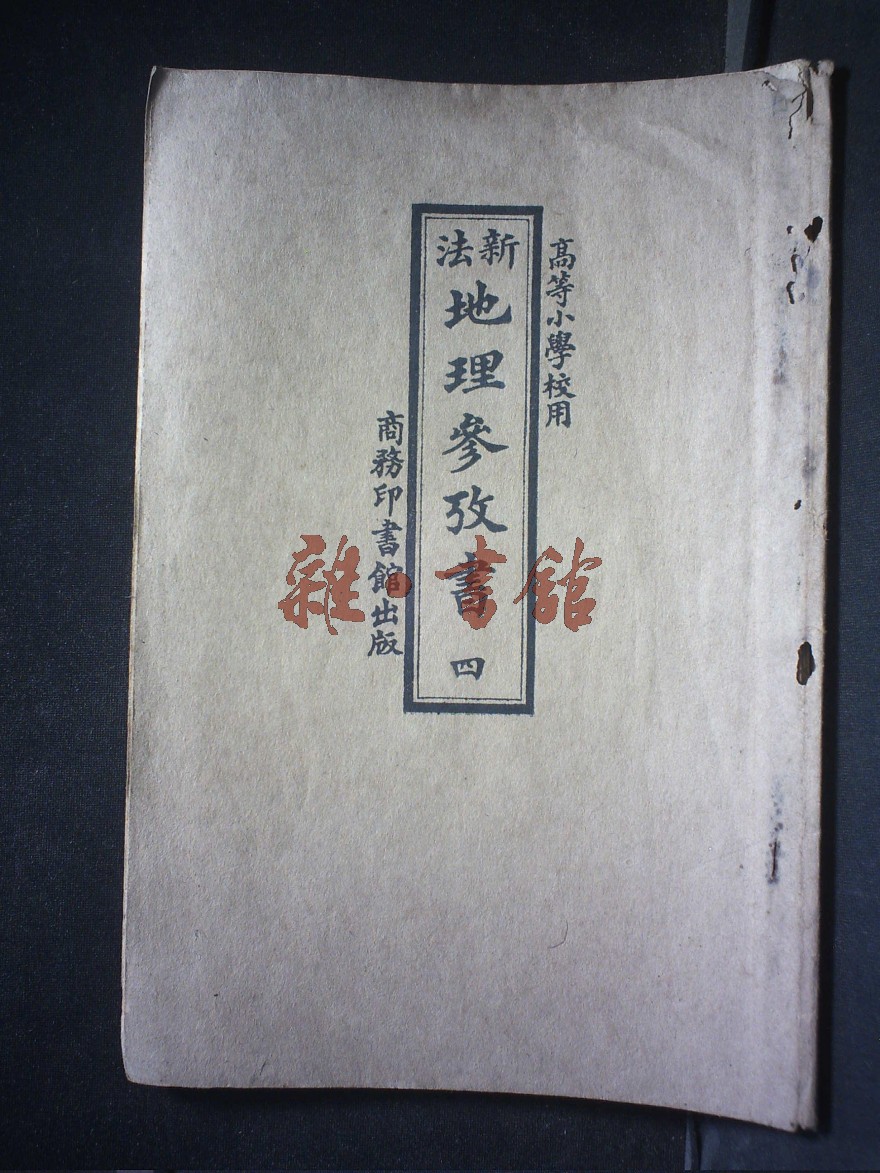 高等小學校用
新法
地理參攷書 四
商務印書館出版
雜·書館